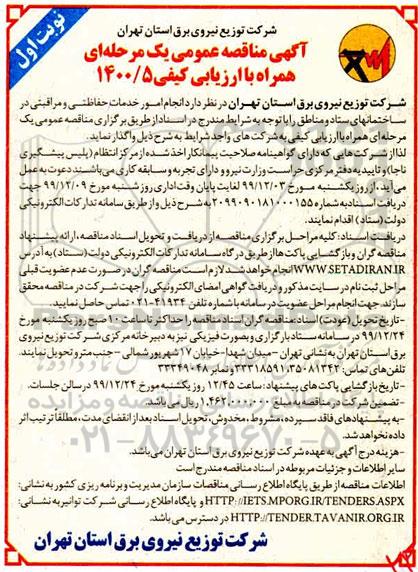 نوبت اول
شرکت توزیع نیروی برق استان تهران
آگهی مناقصه عمومی یک مرحله‌ای
همراه با ارزیابی کیفی ۱۴۰۰/۵
شرکت توزیع نیروی برق استان تهران در نظر دارد انجام امور خدمات حفاظتی و مراقبتی در
ساختمانهای ستاد و مناطق را با توجه به شرایط مندرج در اسناد از طریق برگزاری مناقصه عمومی یک
مرحله‌ای همراه با ارزیابی کیفی به شرکت های واجد شرایط به شرح ذیل واگذار نماید.
لذا از شرکت‌هایی که دارای گواهینامه صلاحیت پیمانکار اخذ شده از مرکز انتظام (پلیس پیشگیری
ناجا) و تاییدیه دفتر مرکزی حراست وزارت نیرو و دارای تجربه و سابقه کاری می‌باشند دعوت به عمل
می‌آید، از روز یکشنبه مورخ ۹۹/۱۲/۰۳ لغایت پایان وقت اداری روز شنبه مورخ ۹۹/۱۲/۰۹ جهت
دریافت اسناد به شماره ۲۰۹۹۰۹۰۱۸۱۰۰۰۱۵۵ به شرح ذیل و از طریق سامانه تدارکات الکترونیکی
دولت (ستاد) اقدام نمایند.
دریافت اسناد: کلیه مراحل برگزاری مناقصه از دریافت و تحویل اسناد مناقصه، ارائه پیشنهاد
مناقصه گران و بازگشایی پاکت‌ها از طریق درگاه سامانه تدارکات الکترونیکی دولت (ستاد) به آدرس
WWW.SETADIRAN.IR انجام خواهد شد. لازم است مناقصه گران در صورت عدم عضویت قبلی
مراحل ثبت نام در سایت مذکور و دریافت گواهی امضای الکترونیکی را جهت شرکت در مناقصه محقق
سازند. جهت انجام مراحل عضویت در سامانه با شماره تلفن ۴۱۹۳۴-۰۲۱ تماس حاصل نمایید.
-تاریخ تحویل (عودت) اسناد: مناقصه گران اسناد مناقصه را حداکثر تا ساعت ۱۰ صبح روز یکشنبه مورخ
۹۹/۱۲/۲۴ در سامانه ستاد بارگزاری و بصورت فیزیکی نیز به دبیرخانه مرکزی شرکت توزیع نیروی
برق استان تهران به نشانی تهران - میدان شهدا-خیابان ۱۷ شهریور شمالی - جنب مترو تحویل نمایند.
تلفن های تماس: ۳۵۰۸۱۳۴۲، ۳۳۳۱۸۵۹۱ و نمابر ۳۳۳۴۹۰۴۸
-تاریخ بازگشایی پاکت های پیشنهاد: ساعت ۱۲/۴۵ روز یکشنبه مورخ ۹۹/۱۲/۲۴ در سالن جلسات.
-تضمین شرکت در مناقصه به مبلغ ۱،۴۶۲،۰۰۰،۰۰۰ ریال می باشد.
-به پیشنهادهای فاقد سپرده، مشروط، مخدوش، تحویل اسناد بعد از انقضای مدت، مطلقاً ترتیب اثر
داده نخواهد شد.
-هزینه درج آگهی به عهده شرکت توزیع نیروی برق استان تهران می باشد.
سایر اطلاعات و جزئیات مربوطه در اسناد مناقصه مندرج است
اطلاعات مناقصه از طریق پایگاه اطلاع رسانی مناقصات سازمان مدیریت و برنامه ریزی کشور به نشانی:
HTTP://IETS.MPORG.IR/TENDERS.ASPX و پایگاه اطلاع رسانی شرکت توانیر به نشانی:
HTTP://TENDER.TAVANIR.ORG.IR در دسترس می باشد.
شرکت توزیع نیروی برق استان تهران
۰۲۱-۸۸۳۴۹۶۷۰-۵